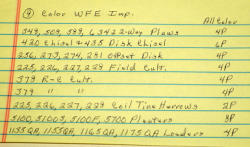 ④ Color WFE Imp.
All Color
349, 509, 589, 6342 2-Way Plows 4P
420 Chisel & 435 Disk Chisel 6P
256, 273, 274, 281 Offset Disk 4P
225, 226, 227, 228 Field Cult. 4P
379 R-C Cult. 4P
379 " " 4P
225, 226, 227, 228 Coil Tine Harrows 2P
5100, 5100S, 5100F, 5700 Planters 8P
1135QA, 1155QA, 1165QA, 1175QA Loaders 4P